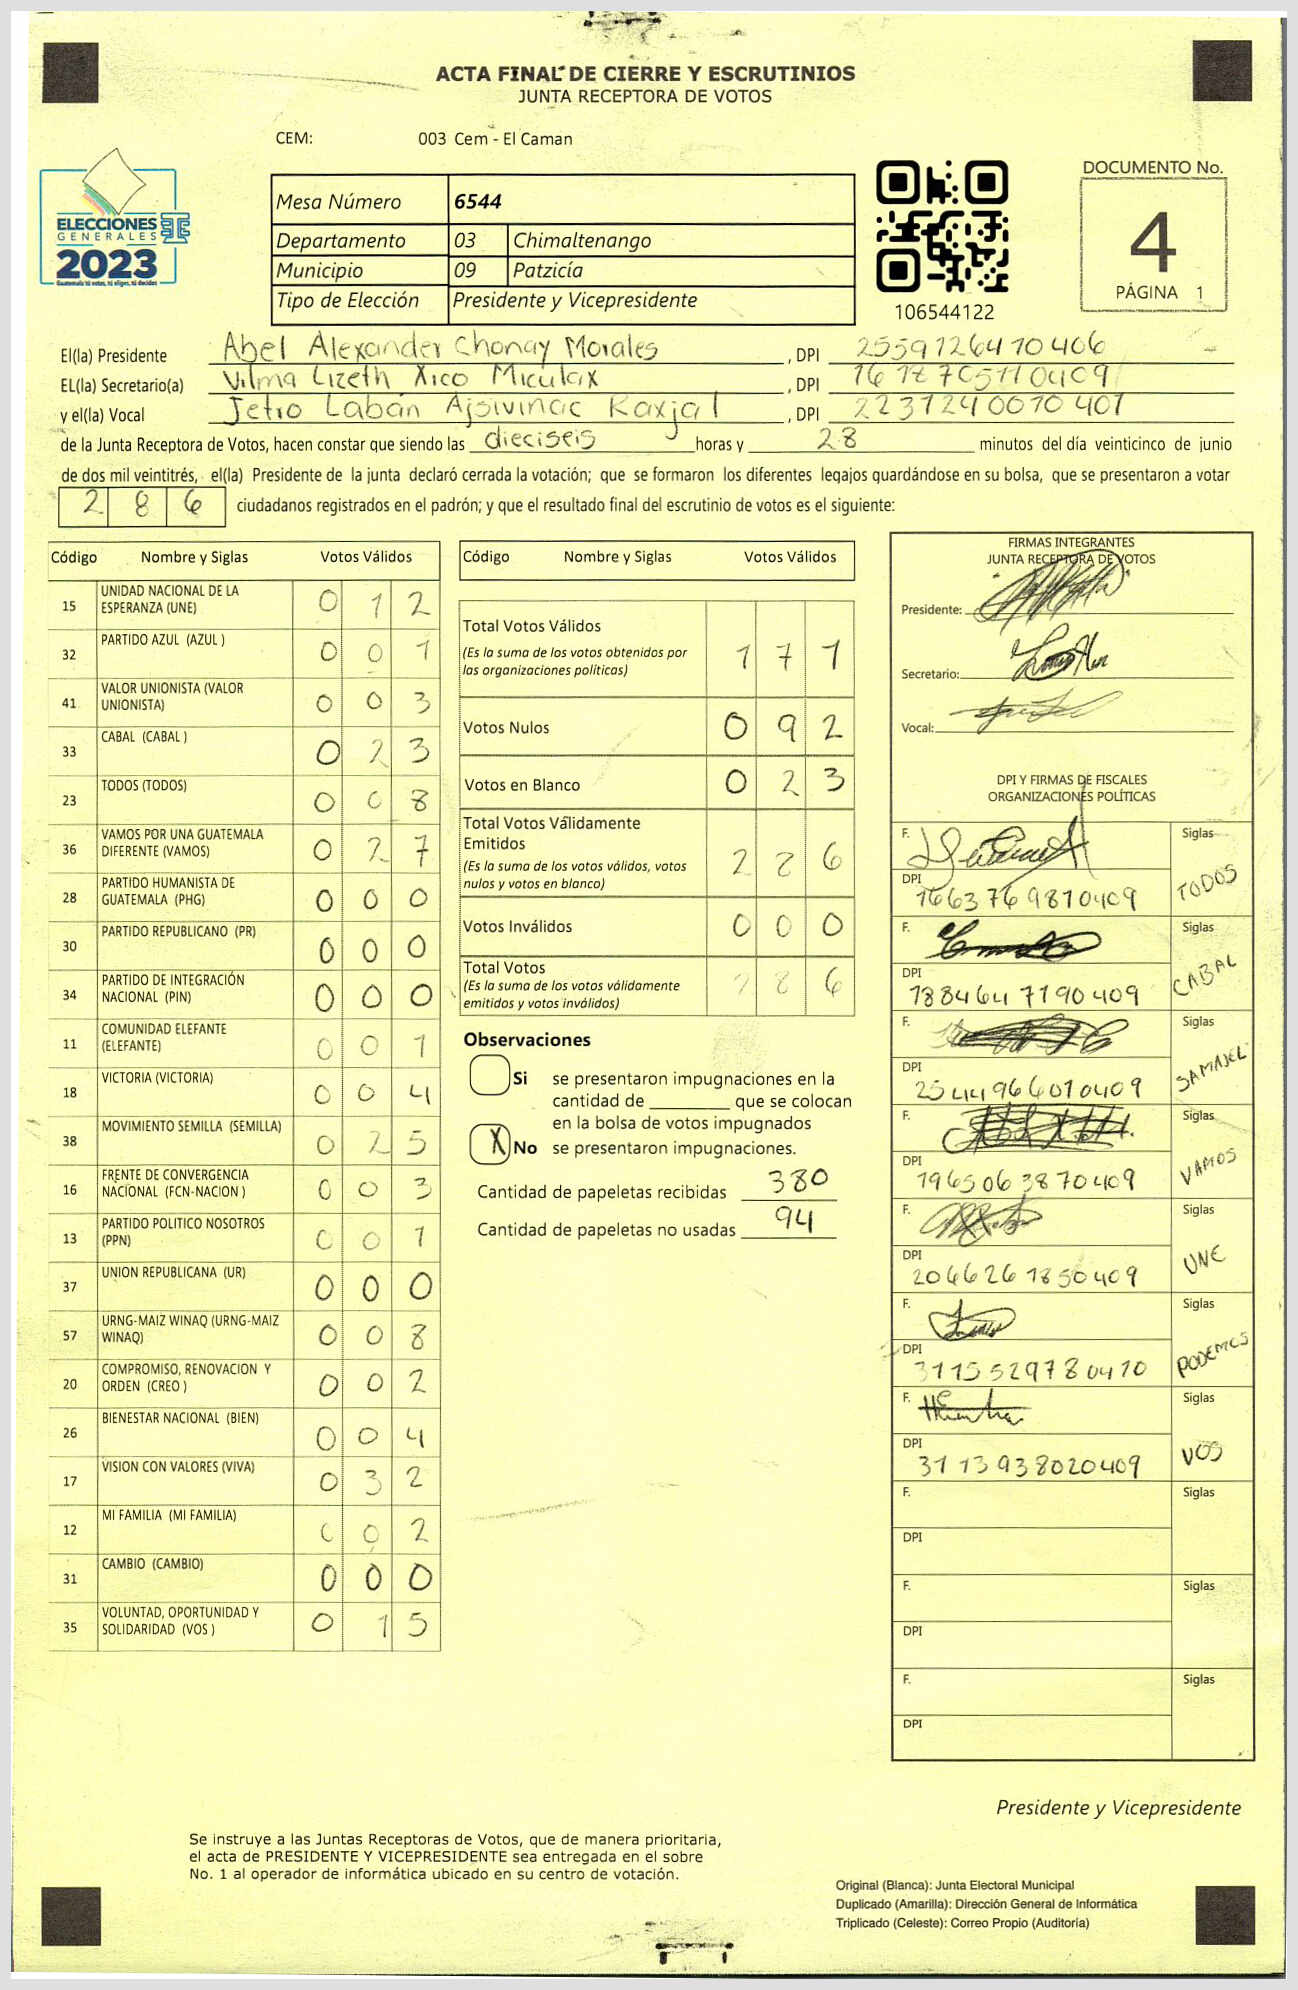 ACTA FINAL DE CIERRE Y ESCRUTINIOS
JUNTA RECEPTORA DE VOTOS
CEM: 003 Cem - El Caman
ELECCIONES
GENERALES
2023
Guatemala: tú votas, tú eliges, tú decides
Mesa Número 6544
Departamento 03 Chimaltenango
Municipio 09 Patzicía
Tipo de Elección Presidente y Vicepresidente
106544122
DOCUMENTO No.
4
PÁGINA 1
El(la) Presidente Abel Alexander Chonay Morales , DPI 2559126470406
EL(la) Secretario(a) Vilma Lizeth Xico Miculax , DPI 1618705110409
y el(la) Vocal Jetro Labán Ajsivinac Raxjal , DPI 2237240070401
de la Junta Receptora de Votos, hacen constar que siendo las dieciseis horas y 28 minutos del día veinticinco de junio
de dos mil veintitrés, el(la) Presidente de la junta declaró cerrada la votación; que se formaron los diferentes legajos guardándose en su bolsa, que se presentaron a votar
286 ciudadanos registrados en el padrón; y que el resultado final del escrutinio de votos es el siguiente:
Código Nombre y Siglas Votos Válidos
15 UNIDAD NACIONAL DE LA ESPERANZA (UNE) 0 1 2
32 PARTIDO AZUL (AZUL ) 0 0 1
41 VALOR UNIONISTA (VALOR UNIONISTA) 0 0 3
33 CABAL (CABAL ) 0 2 3
23 TODOS (TODOS) 0 0 8
36 VAMOS POR UNA GUATEMALA DIFERENTE (VAMOS) 0 2 7
28 PARTIDO HUMANISTA DE GUATEMALA (PHG) 0 0 0
30 PARTIDO REPUBLICANO (PR) 0 0 0
34 PARTIDO DE INTEGRACIÓN NACIONAL (PIN) 0 0 0
11 COMUNIDAD ELEFANTE (ELEFANTE) 0 0 1
18 VICTORIA (VICTORIA) 0 0 4
38 MOVIMIENTO SEMILLA (SEMILLA) 0 2 5
16 FRENTE DE CONVERGENCIA NACIONAL (FCN-NACION ) 0 0 3
13 PARTIDO POLITICO NOSOTROS (PPN) 0 0 1
37 UNION REPUBLICANA (UR) 0 0 0
57 URNG-MAIZ WINAQ (URNG-MAIZ WINAQ) 0 0 8
20 COMPROMISO, RENOVACION Y ORDEN (CREO ) 0 0 2
26 BIENESTAR NACIONAL (BIEN) 0 0 4
17 VISION CON VALORES (VIVA) 0 3 2
12 MI FAMILIA (MI FAMILIA) 0 0 2
31 CAMBIO (CAMBIO) 0 0 0
35 VOLUNTAD, OPORTUNIDAD Y SOLIDARIDAD (VOS ) 0 1 5
Código Nombre y Siglas Votos Válidos
Total Votos Válidos
(Es la suma de los votos obtenidos por
las organizaciones políticas) 1 7 1
Votos Nulos 0 9 2
Votos en Blanco 0 2 3
Total Votos Válidamente
Emitidos
(Es la suma de los votos válidos, votos
nulos y votos en blanco) 2 8 6
Votos Inválidos 0 0 0
Total Votos
(Es la suma de los votos válidamente
emitidos y votos inválidos) 2 8 6
Observaciones
Si se presentaron impugnaciones en la
cantidad de ________ que se colocan
en la bolsa de votos impugnados
X No se presentaron impugnaciones.
Cantidad de papeletas recibidas 380
Cantidad de papeletas no usadas 94
FIRMAS INTEGRANTES
JUNTA RECEPTORA DE VOTOS
Presidente:
Secretario:
Vocal:
DPI Y FIRMAS DE FISCALES
ORGANIZACIONES POLÍTICAS
F. Siglas
DPI 1663769870409 TODOS
F. Siglas
DPI 1884647190409 CABAL
F. Siglas
DPI 2544966010409 SAMAJEL
F. Siglas
DPI 1965063870409 VAMOS
F. Siglas
DPI 2046261850409 UNE
F. Siglas
DPI 3115529780410 PODEMOS
F. Siglas
DPI 3113938020409 VOS
F. Siglas
DPI
F. Siglas
DPI
F. Siglas
DPI
Presidente y Vicepresidente
Se instruye a las Juntas Receptoras de Votos, que de manera prioritaria,
el acta de PRESIDENTE Y VICEPRESIDENTE sea entregada en el sobre
No. 1 al operador de informática ubicado en su centro de votación.
Original (Blanca): Junta Electoral Municipal
Duplicado (Amarilla): Dirección General de Informática
Triplicado (Celeste): Correo Propio (Auditoría)